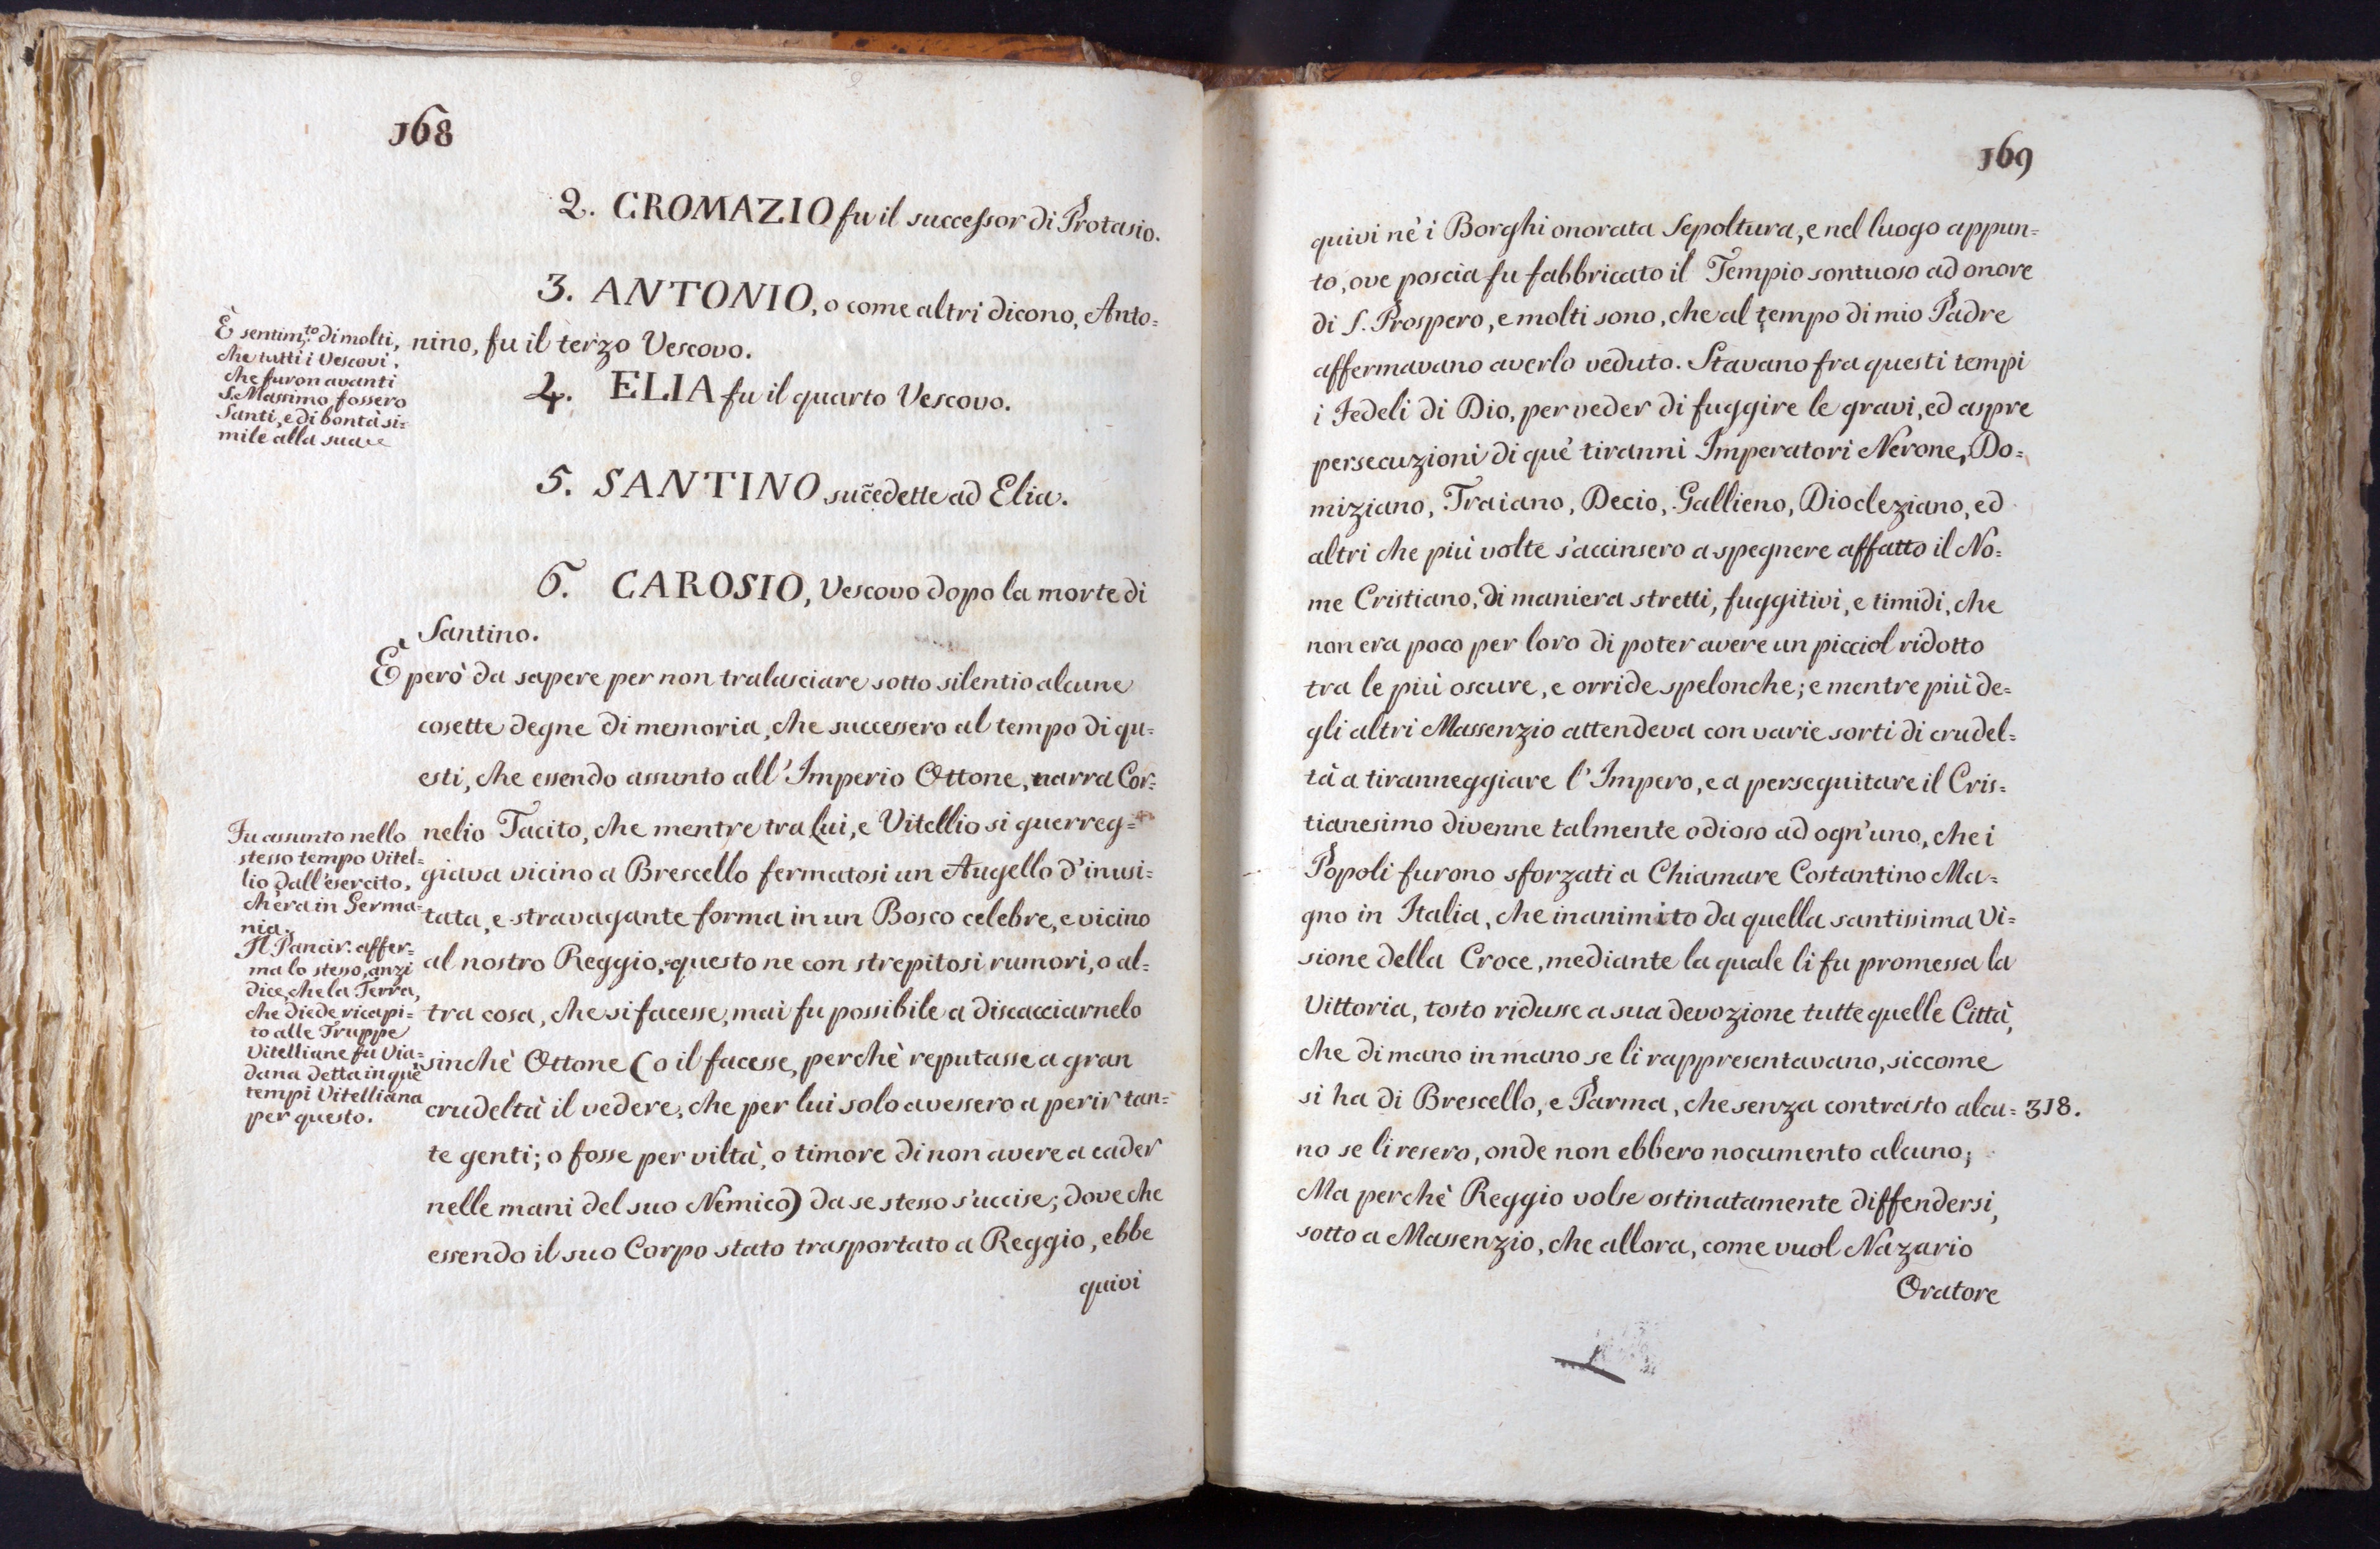 168
2. CROMAZIO fu il successor di Protasio.
3. ANTONIO, o come altri dicono, Anto=
nino, fu il terzo Vescovo.
4. ELIA fu il quarto Vescovo.
5. SANTINO succedette ad Elia.
6. CAROSIO, Vescovo dopo la morte di
Santino.
È però da sapere per non tralasciare sotto silentio alcune
cosette degne di memoria, che successero al tempo di qu=
esti, che essendo assunto all'Imperio Ottone, narra Cor=
nelio Tacito, che mentre tra lui, e Vitellio si guerreg=
giava vicino a Brescello fermatosi un Augello d'inusi=
tata, e stravagante forma in un Bosco celebre, e vicino
al nostro Reggio, questo ne con strepitosi rumori, o al=
tra cosa, che si facesse, mai fu possibile a discacciarnelo
sinchè Ottone (o il facesse, perchè reputasse a gran
crudeltà il vedere, che per lui solo avessero a perir tan=
te genti; o fosse per viltà, o timore di non avere a cader
nelle mani del suo Nemico) da se stesso s'uccise; dove che
essendo il suo Corpo stato trasportato a Reggio, ebbe
quivi
È sentim.to di molti,
che tutti i Vescovi,
che furon avanti
S. Massimo fossero
Santi, e di bontà si=
mile alla sua
Fu assunto nello
stesso tempo Vitel=
lio dall'esercito,
ch'era in Germa=
nia.
Il Pancir. affer=
ma lo stesso, anzi
dice, che la Terra,
che diede ricapi=
to alle Truppe
Vitelliane fu Via=
dana detta in què
tempi Vitelliana
per questo.
169
quivi nè i Borghi onorata Sepoltura, e nel luogo appun=
to, ove poscia fu fabbricato il Tempio sontuoso ad onore
di S. Prospero, e molti sono, che al tempo di mio Padre
affermavano averlo veduto. Stavano fra questi tempi
i Fedeli di Dio, per veder di fuggire le gravi, ed aspre
persecuzioni di què tiranni Imperatori Nerone, Do=
miziano, Traiano, Decio, Gallieno, Diocleziano, ed
altri che più volte s'accinsero a spegnere affatto il No=
me Cristiano, di maniera stretti, fuggitivi, e timidi, che
non era poco per loro di poter avere un picciol ridotto
tra le più oscure, e orride spelonche; e mentre più de=
gli altri Massenzio attendeva con varie sorti di crudel=
tà a tiranneggiare l'Impero, e a perseguitare il Cris=
tianesimo divenne talmente odioso ad ogn'uno, che i
Popoli furono sforzati a Chiamare Costantino Ma=
gno in Italia, che inanimito da quella santissima Vi=
sione della Croce, mediante la quale li fu promessa la
Vittoria, tosto ridusse a sua devozione tutte quelle Città,
che di mano in mano se li rappresentavano, siccome
si ha di Brescello, e Parma, che senza contrasto alcu= 318.
no se li resero, onde non ebbero nocumento alcuno;
Ma perchè Reggio volse ostinatamente diffendersi,
sotto a Massenzio, che allora, come vuol Nazario
Oratore